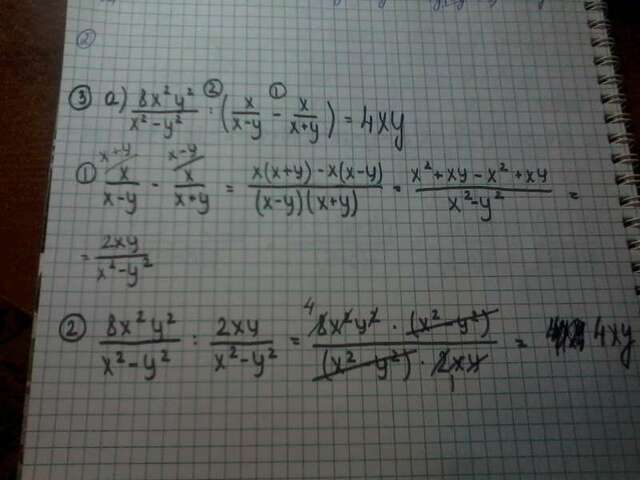 ②
③ а) 8x²y²/(x²-y²) :② (x/(x-y) -① x/(x+y)) = 4xy
① x+y/ x/(x-y) - x-y/ x/(x+y) = (x(x+y) - x(x-y))/((x-y)(x+y)) = (x² + xy - x² + xy)/(x²-y²) =
= 2xy/(x²-y²)
② 8x²y²/(x²-y²) : 2xy/(x²-y²) = 4 8x²y² · (x² - y²)/((x² - y²) · 2xy) 1 = 4xy